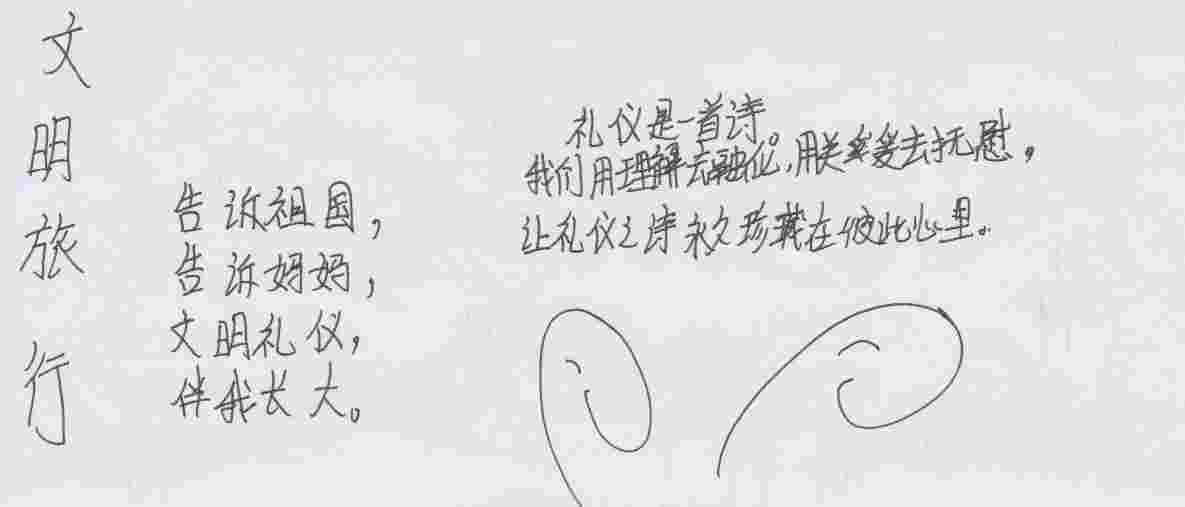 文明旅行
告诉祖国，
告诉妈妈，
文明礼仪，
伴我长大。
礼仪是一首诗。
我们用理解去融化，用关爱去抚慰，
让礼仪之诗永久珍藏在彼此心里。